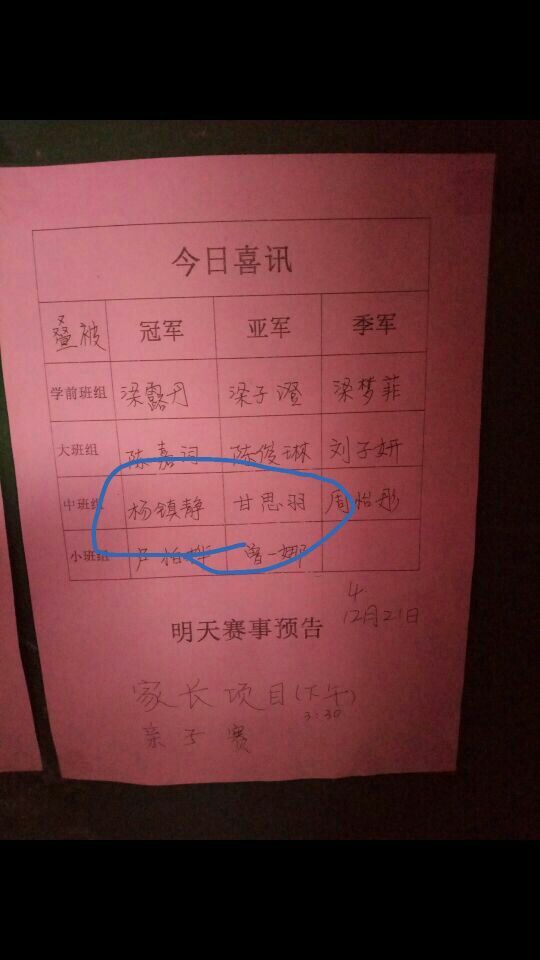 今日喜讯
叠被 冠军 亚军 季军
学前班组 梁露丹 梁子澄 梁梦菲
大班组 陈嘉词 陈俊琳 刘子妍
中班组 杨镇静 甘思羽 周怡彤
小班组 曾一娜
4
12月21日
明天赛事预告
家长项目(下午)
3:30
亲子赛